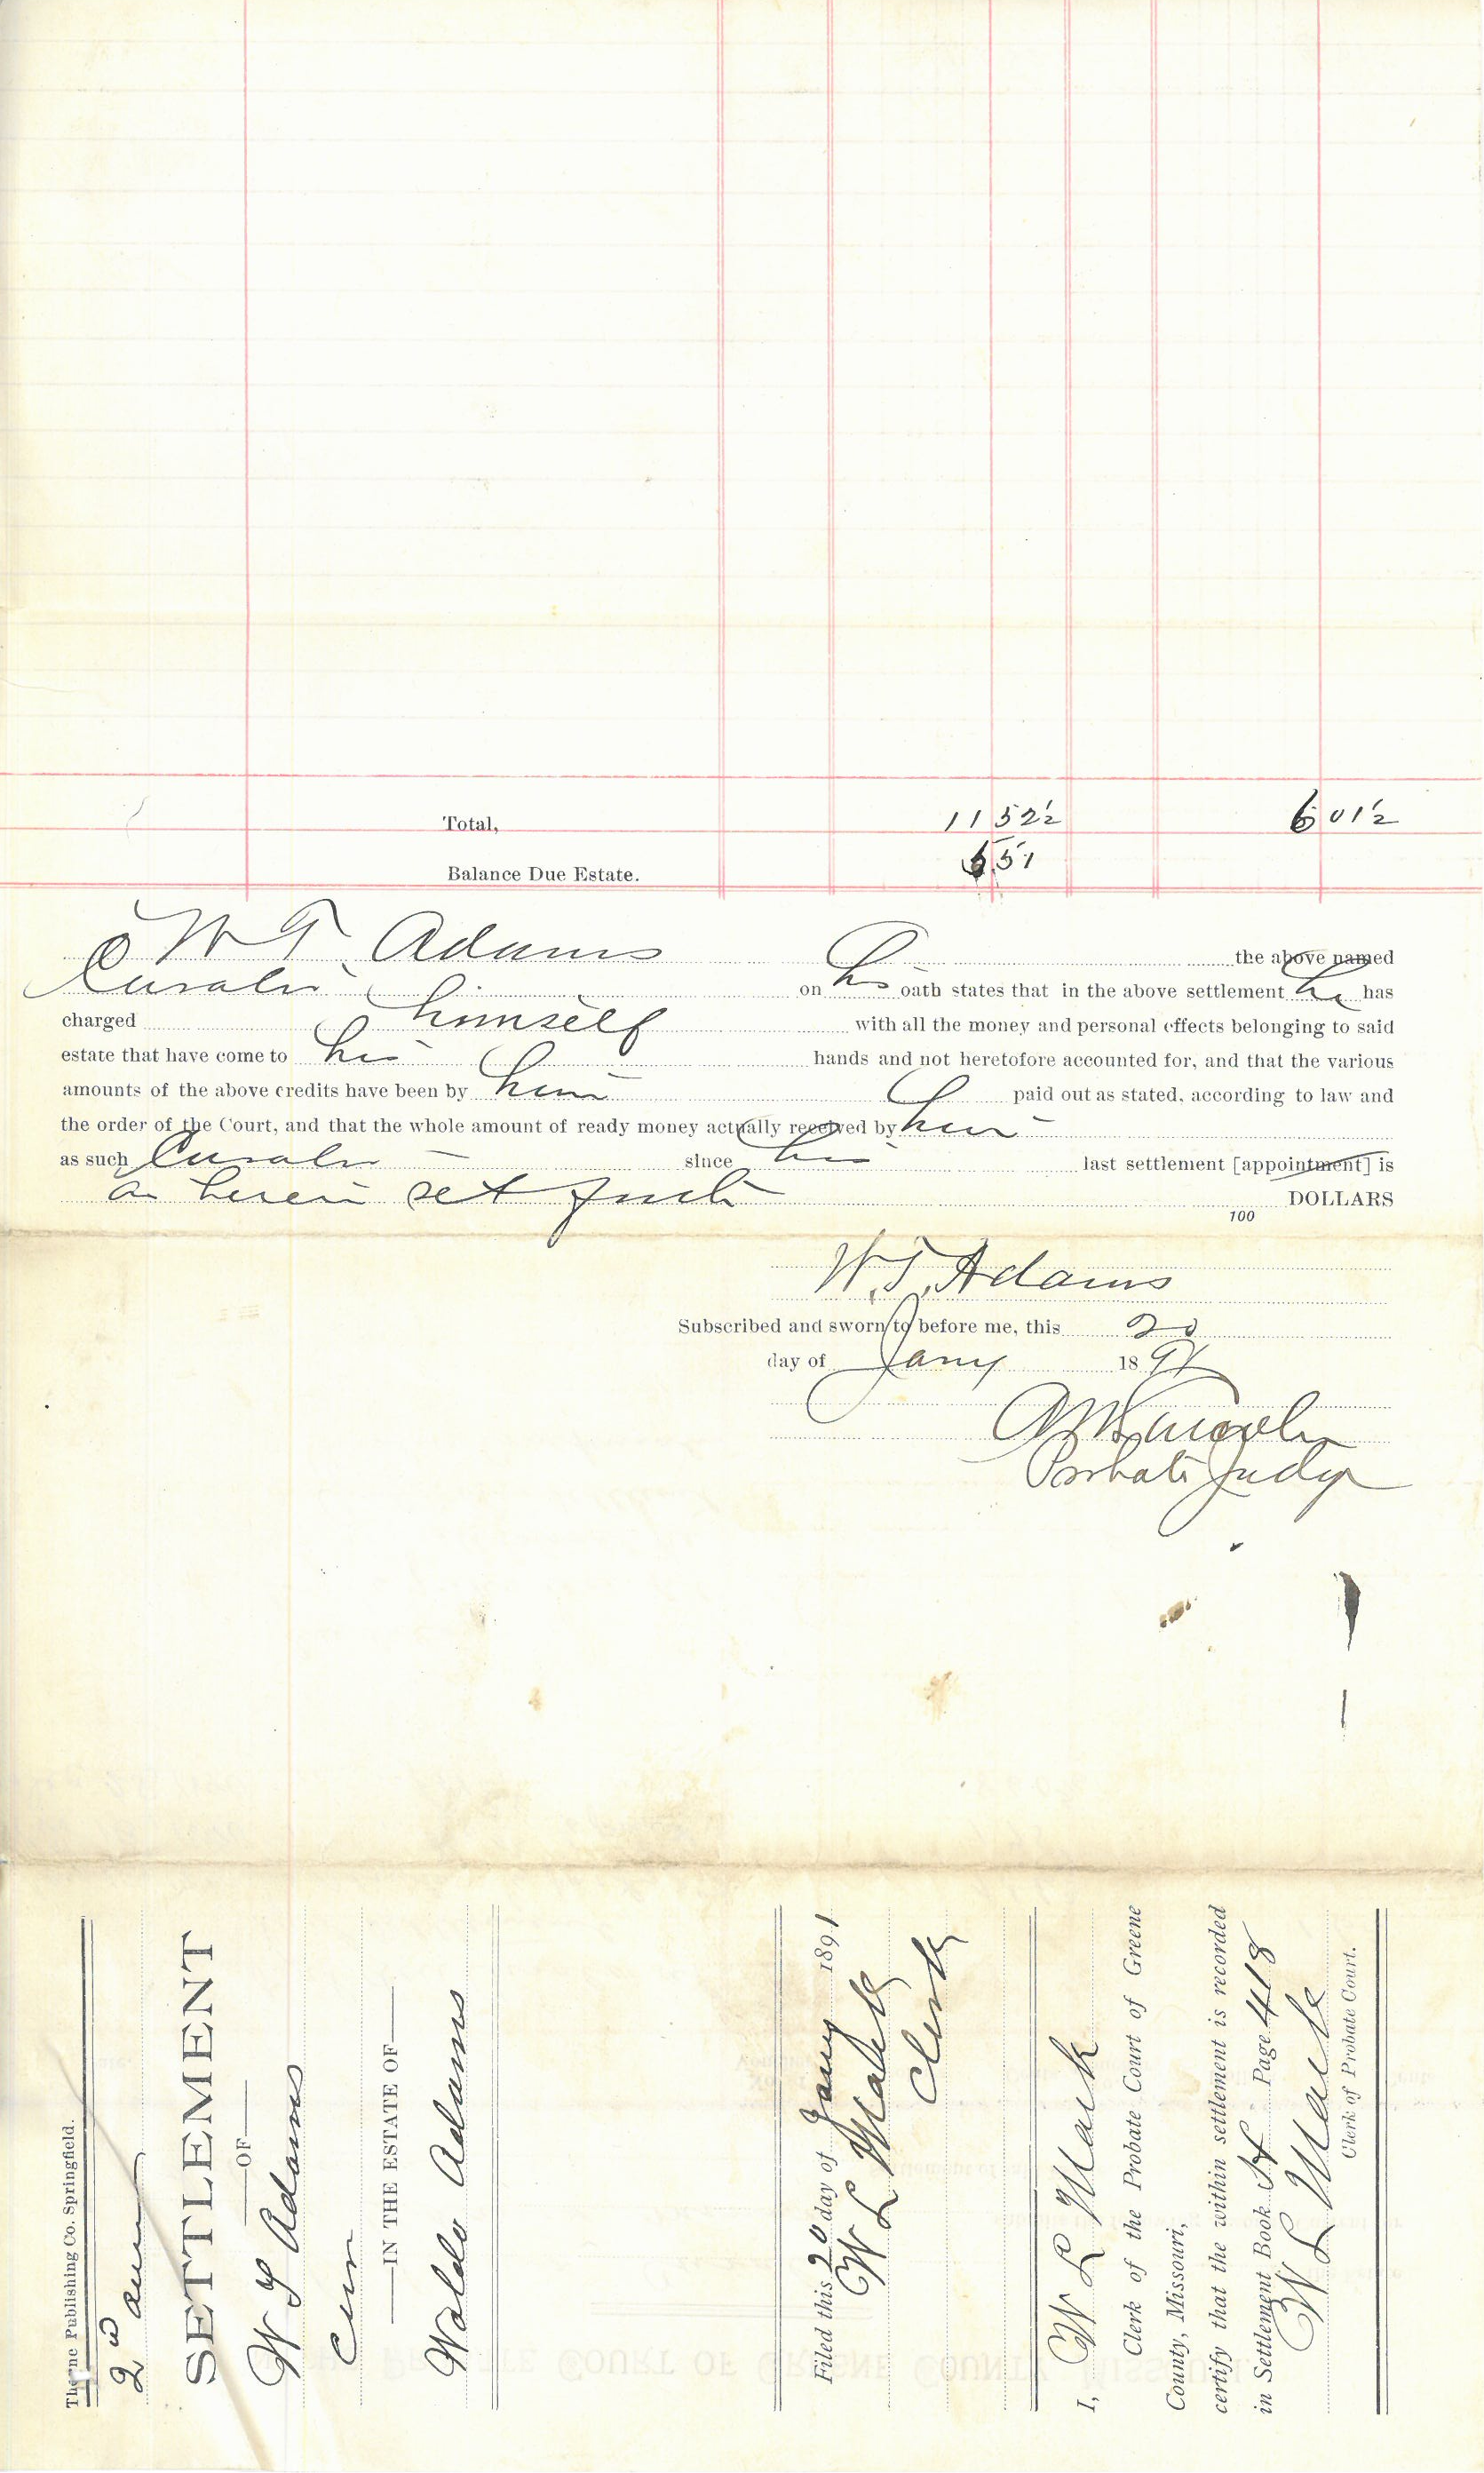 Total, 11 52½ 6 01½
Balance Due Estate. 5 51
W T. Adams the above named
Curator on his oath states that in the above settlement he has
charged himself with all the money and personal effects belonging to said
estate that have come to his hands and not heretofore accounted for, and that the various
amounts of the above credits have been by him paid out as stated, according to law and
the order of the Court, and that the whole amount of ready money actually received by him
as such Curator since his last settlement [appointment] is
as herein set forth DOLLARS
100
W. T. Adams
Subscribed and sworn to before me, this 20
day of Jany 1891
Probate Judge
Thorne Publishing Co. Springfield.
2d ann
SETTLEMENT
—OF—
W T Adams
Cur
—IN THE ESTATE OF—
Waldo Adams
Filed this 20 day of Jany 1891
W L Mack
Clerk
I, W L Mack
Clerk of the Probate Court of Greene
County, Missouri,
certify that the within settlement is recorded
in Settlement Book Page 418
W L Mack
Clerk of Probate Court.